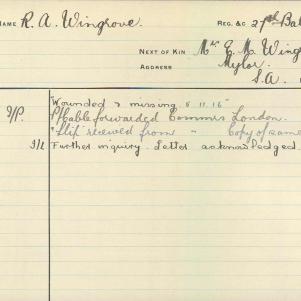 NAME R. A. Wingrove. REG. &C 27th Bat
NEXT OF KIN Mr. E. M. Wing
ADDRESS Mylor.
S.A.
"Wounded & missing 5 11.16"
I/P. Cable forwarded Commrs London.
"Slip received from " Copy of same
I/L Further inquiry. Letter acknowledged.